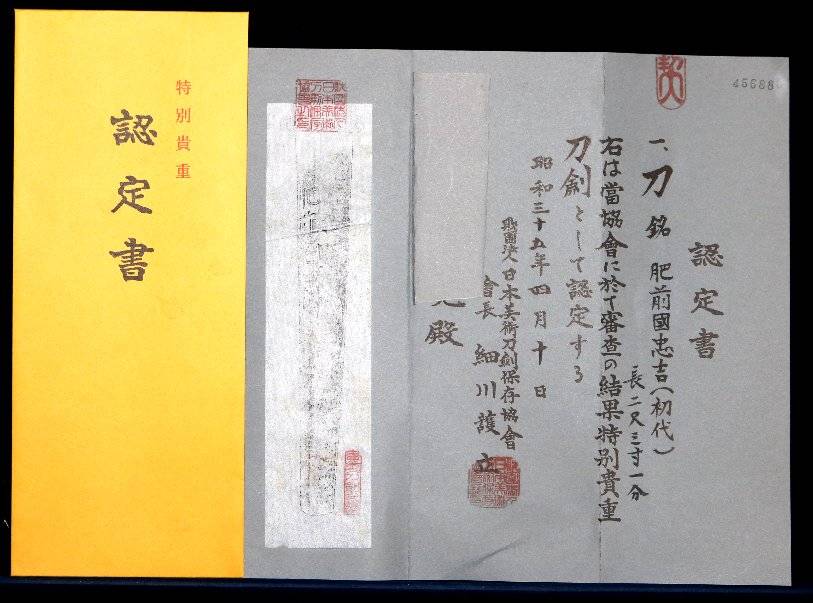 特別貴重
認定書
45688
認定書
一、刀 銘 肥前國忠吉(初代)
長二尺三寸一分
右は當協會に於て審査の結果特別貴重
刀劍として認定する
昭和三十五年四月十日
財團法人日本美術刀劍保存協會
會長 細川護立
殿